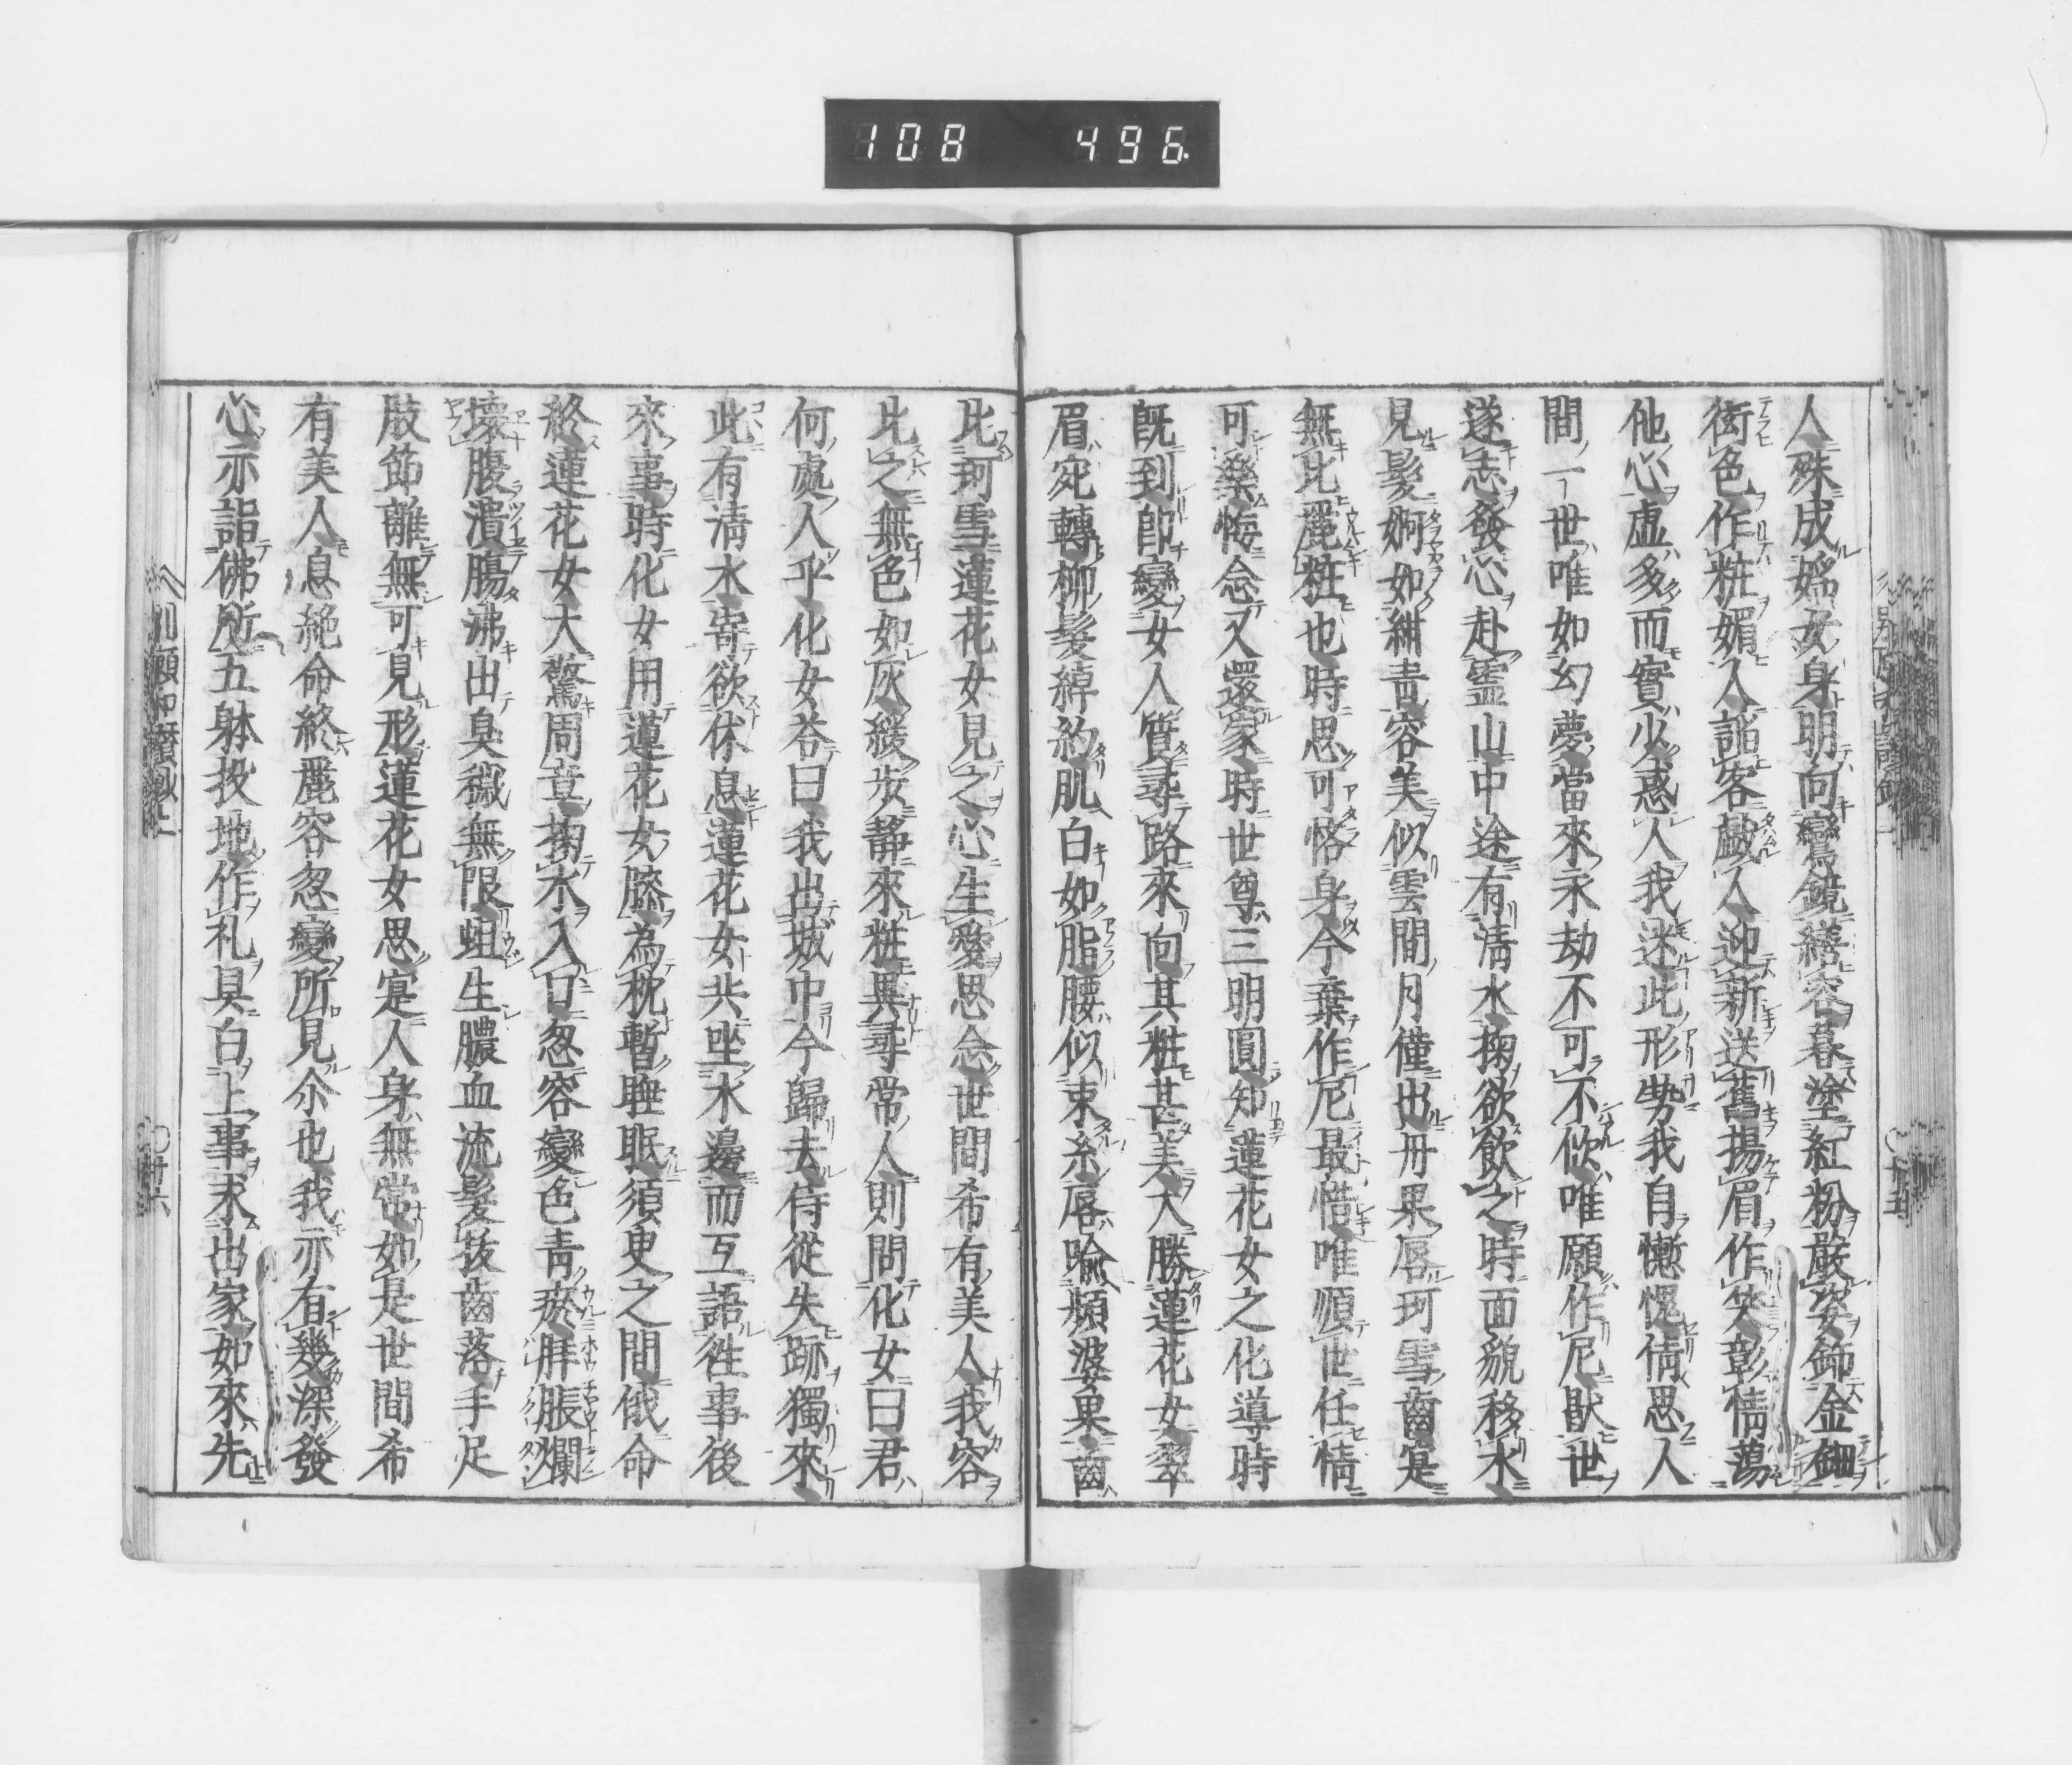 108 496.
人殊成婬女身明向鸞鏡繕容暮塗紅粉嚴姿飾金鈿
衒色作粧媚人諂客戯人迎新送舊揚眉作笑彰情蕩
他心虚多而實少惑人我迷此形勢我自慚愧倩思人
間一世唯如幻夢當來永劫不可不欣唯願作尼厭世
遂志發心赴霊山中途有淸水掬欲飲之時面貌移水
見髮婀如紺靑容美似雲間月僅出丹果唇珂雪齒寔
無比麗粧也時思可悋身今棄作尼最惜唯順世任情
可樂悔念又還家時世尊三明圓知蓮花女之化導時
既到即變女人質尋路來向其粧甚美大勝蓮花女翠
眉宛轉柳髮綽約肌白如脂腰似束糸唇喩頻婆果齒
比珂雪蓮花女見之心生愛思念世間希有美人我容
比之無色如灰緩步靜來粧異尋常人則問化女曰君
何處人乎化女荅曰我出城中今歸去侍從失跡獨來
此有淸水寄欲休息蓮花女共坐水邊而互語徃事後
來事時化女用蓮花女膝為枕暫睡眠須臾之間俄命
終蓮花女大驚周章掬水入口忽容變色靑瘀胖脹爛
壞腹潰膓沸出臭穢無限蛆生膿血流髮拔齒落手足
肢節離無可見形蓮花女思寔人身無常如是世間希
有美人息絕命終麗容忽變所見尒也我亦有幾深發
心亦詣佛所五躰投地作礼具白上事求出家如來先